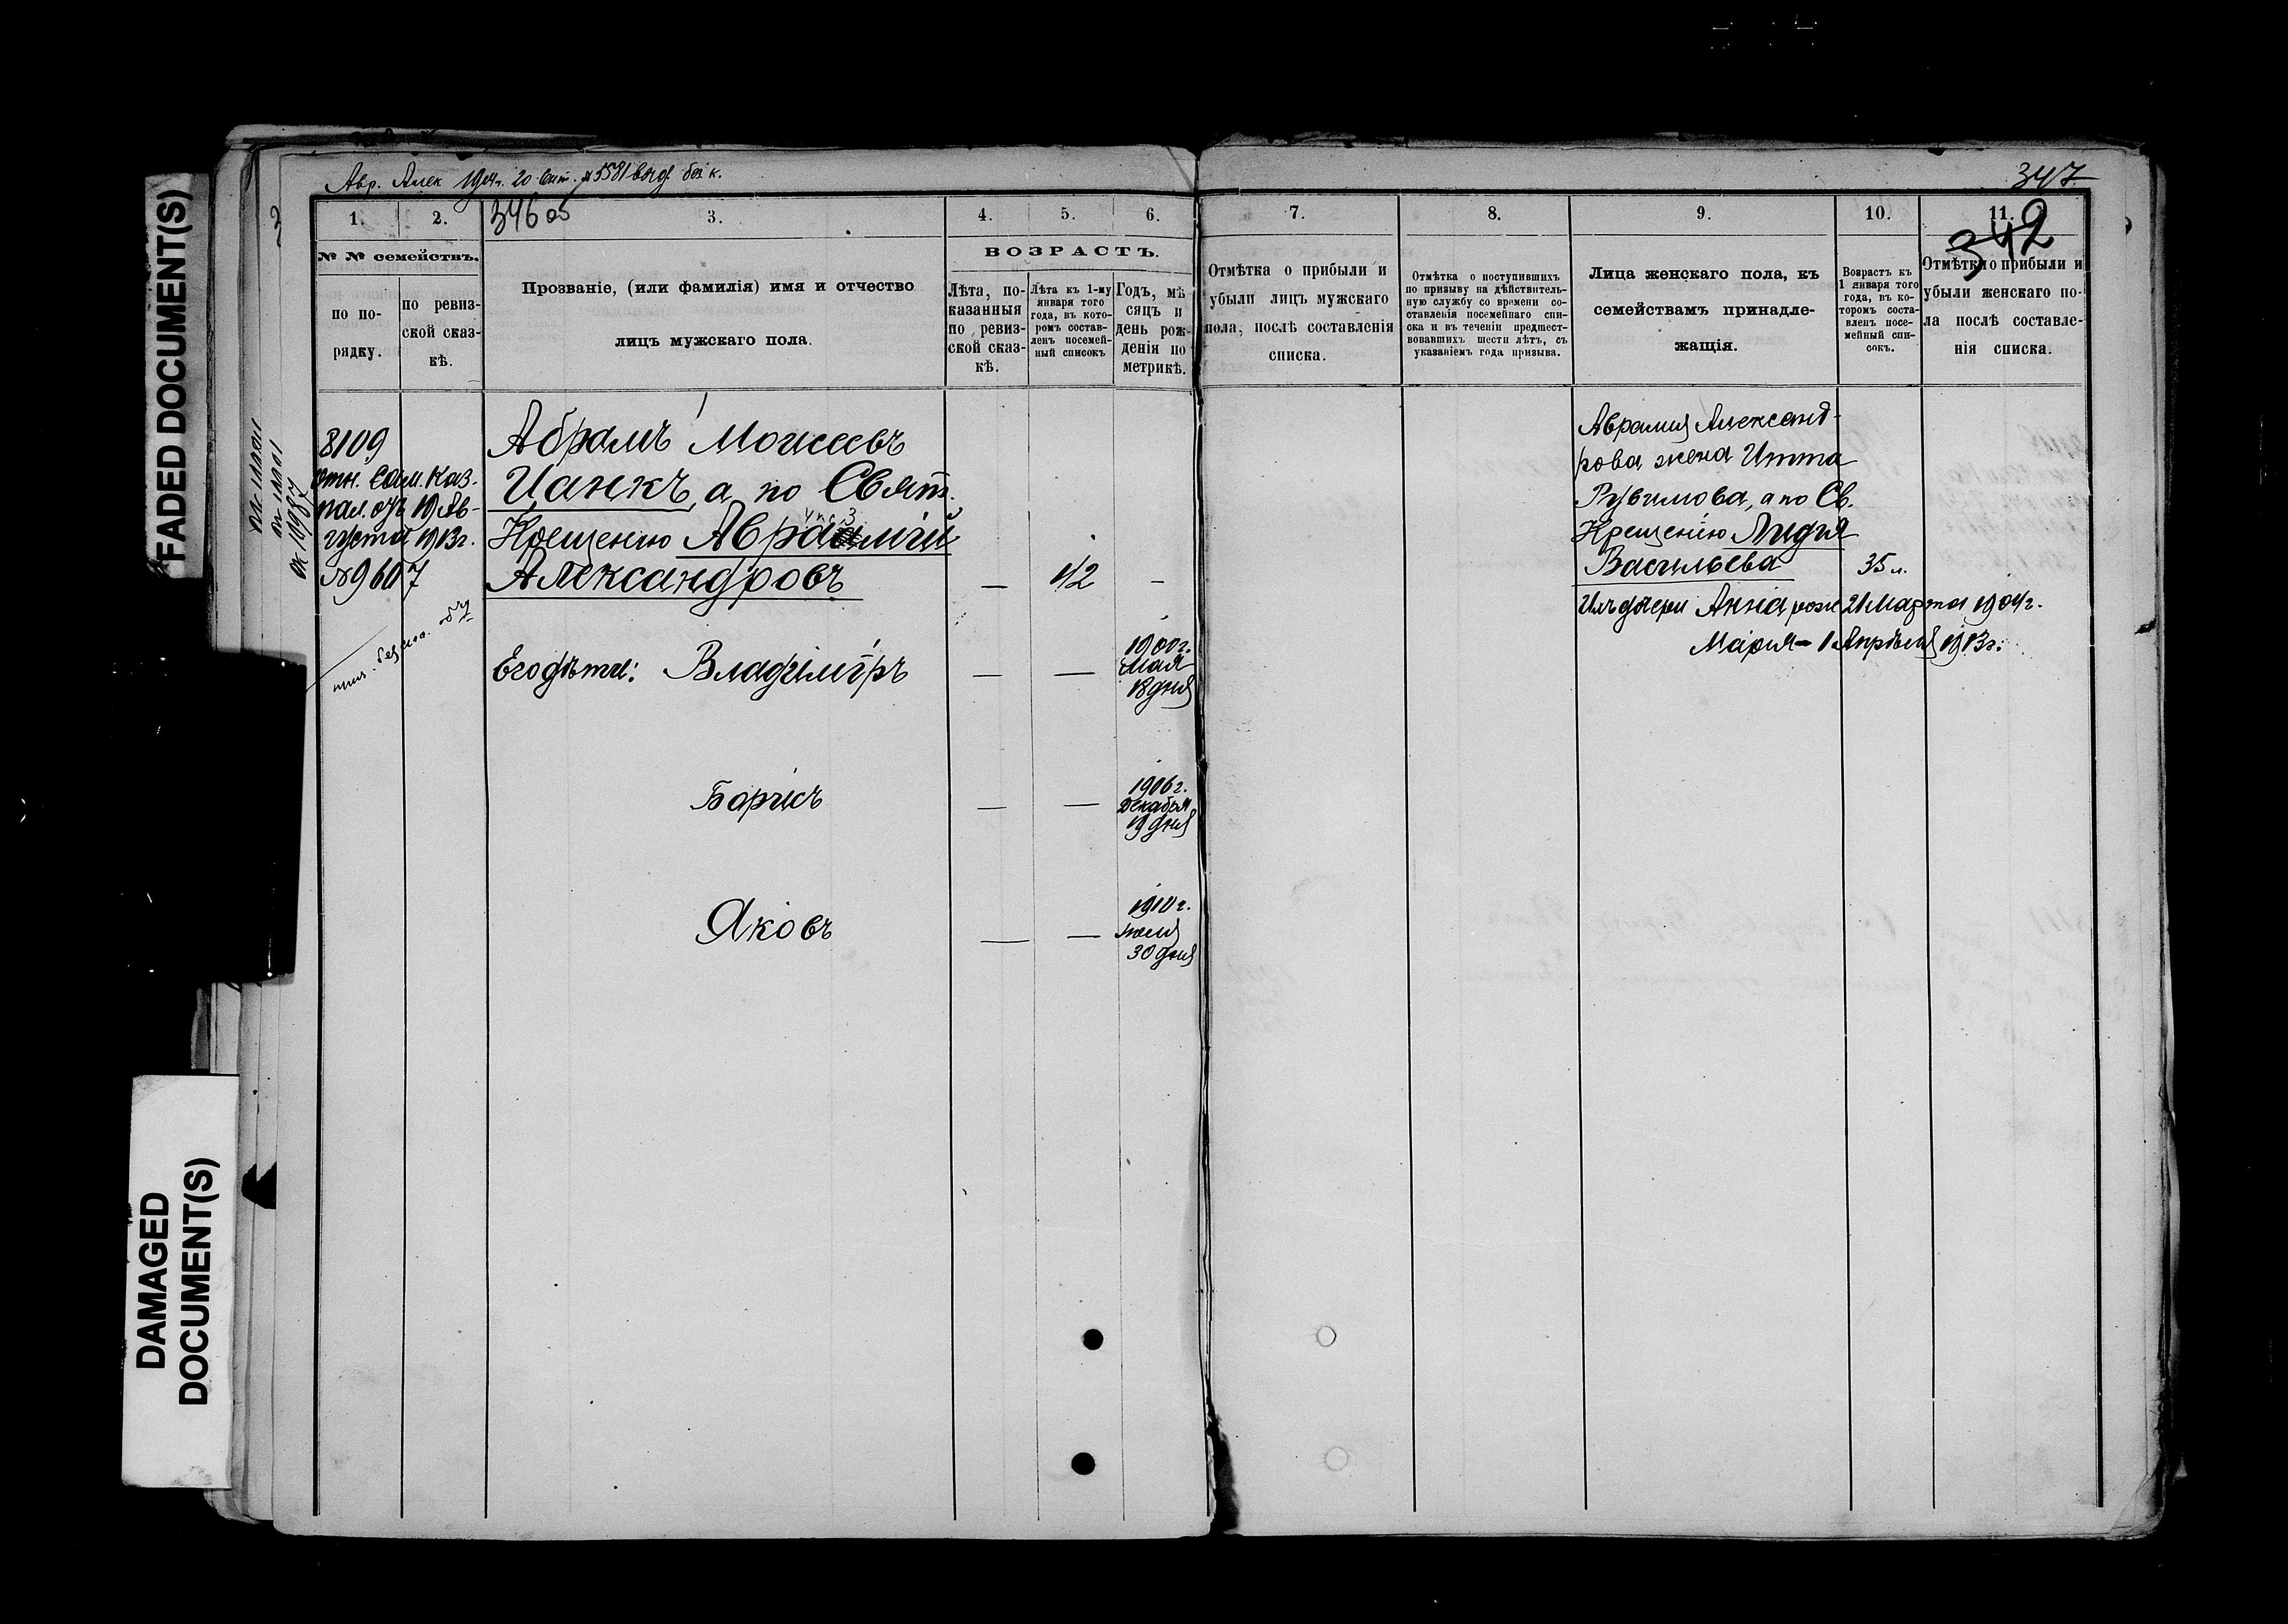 FADED DOCUMENT(S)
DAMAGED
DOCUMENT(S)
Авр. Алек. 1914г. 20 Сент. № 5581 выд. без к.
347
34605
342
1. 2. 3. 4. 5. 6. 7. 8. 9. 10. 11.
№ № семействъ.
по по-
рядку.
по ревиз-
ской сказ-
кѣ.
Прозваніе, (или фамилія) имя и отчество
лицъ мужскаго пола.
ВОЗРАСТЪ.
Лѣта, по-
казанныя
по ревиз-
ской сказ-
кѣ.
Лѣта къ 1-му
января того
года, въ кото-
ромъ состав-
ленъ посемей-
ный списокъ
Годъ, мѣ
сяцъ и
день рож-
денія по
метрикѣ.
Отмѣтка о прибыли и
убыли лицъ мужскаго
пола, послѣ составленія
списка.
Отмѣтка о поступившихъ
по призыву на дѣйствитель-
ную службу со времени со-
ставленія посемейнаго спи-
ска и въ теченіи предшест-
вовавшихъ шести лѣтъ, съ
указаніемъ года призыва.
Лица женскаго пола, къ
семействамъ принадле-
жащія.
Возрастъ къ
1 января того
года, въ ко-
торомъ соста-
вленъ посе-
мейный спи-
сокъ.
Отмѣтка о прибыли и
убыли женскаго по-
ла послѣ составле-
нія списка.
8109
отн. Сам. Каз.
пал. отъ 19 Ав-
густа 1913г.
№9607
Абрамъ Моисеевъ
Цанкъ, а по Свят.
Крещенію Авраамій
Александровъ — 42 —
Его дѣти: Владиміръ — —
1900г.
Мая
18 дня
Борисъ — —
1906г.
Декабря
19 дня
Яковъ — —
1910г.
Іюля
30 дня
Аврамія Александ-
рова жена Итта
Рувимова, а по Св.
Крещенію Лидія
Васильева 35 л.
Ихъ дочери Анна, рожд. 21 Марта 1904г.
Марія – 1 Апрѣля 1913г.